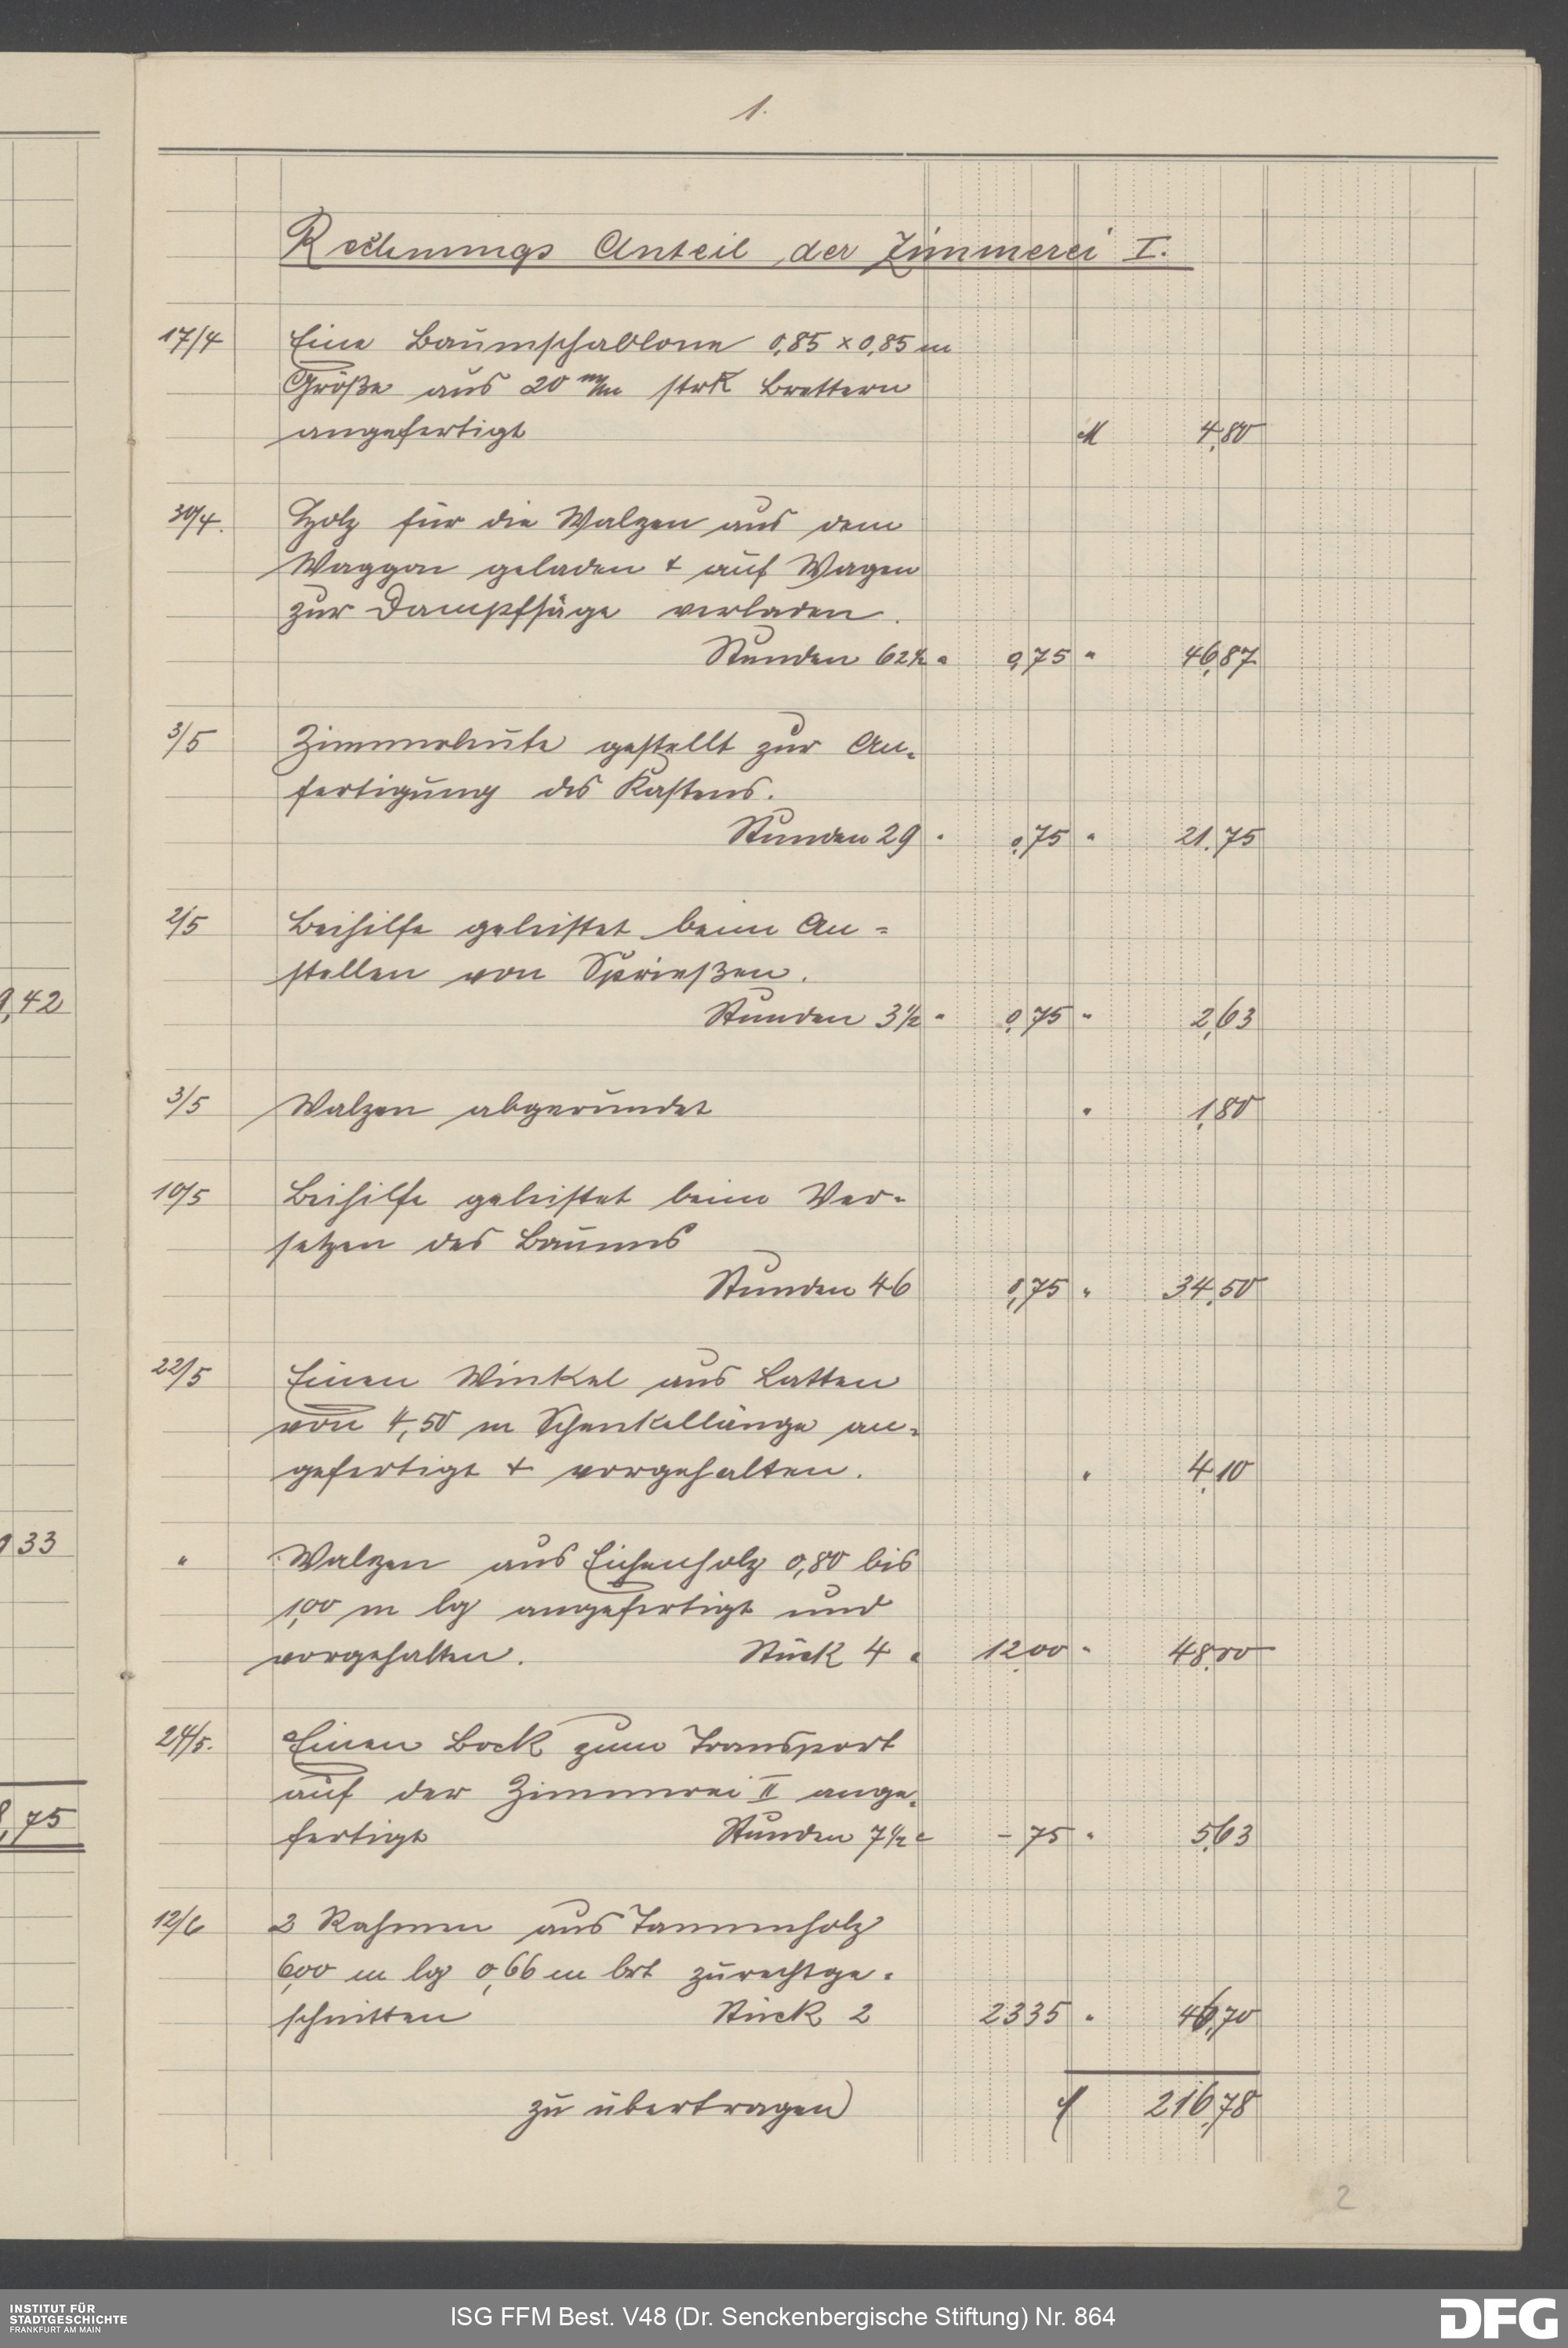 1.
Rechnungs Anteil der Zimmerei I.
17/4 Eine Baumschablone 0,85 x 0,85 m
Größe aus 20 m/m strk Brettern
angefertigt M 4,80
30/4. Holz für die Walzen aus dem
Waggon geladen + auf Wagen
zur Dampfsäge verladen.
Stunden 62½ " 0,75 " 46,87
3/5 Zimmerleute gestellt zur An-
fertigung des Kastens.
Stunden 29 " 0,75 " 21.75
2/5 Beihilfe geleistet beim An=
stellen von Sprießen.
Stunden 3½ " 0,75 " 2,63
3/5 Walzen abgerundet " 1,80
10/5 Beihilfe geleistet beim Ver-
setzen des Baumes
Stunden 46 0,75 " 34,50
22/5 Einen Winkel aus Latten
von 4,50 m Schenkellänge an-
gefertigt + vorgehalten. " 4,10
" Walzen aus Eichenholz 0,80 bis
1,00 m lg angefertigt und
vorgehalten. Stück 4 " 12,00 " 48,00
24/5. Einen Bock zum Transport
auf der Zimmerei II ange-
fertigt Stunden 7½ " - 75 " 5,63
12/6 2 Rahmen aus Tannenholz
6,00 m lg 0,66 m brt zurechtge-
schnitten Stück 2 23 35 " 46,70
zu übertragen M 216,78
2
9,42
933
8,75
INSTITUT FÜR
STADTGESCHICHTE
FRANKFURT AM MAIN
ISG FFM Best. V48 (Dr. Senckenbergische Stiftung) Nr. 864
DFG